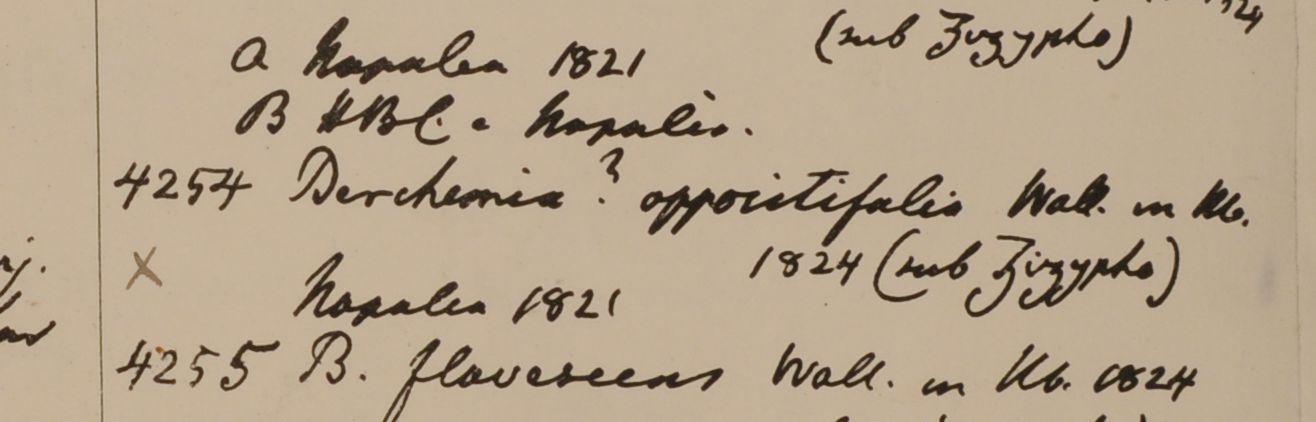 1824
(sub Zizypho)
a Napalea 1821
B HBC. e Napalia.
4254 Berchemia? oppositifolia Wall. in Hb.
1824 (sub Zizypho)
X
Napalea 1821
4255 B. flavescens Wall. in Hb. 1824